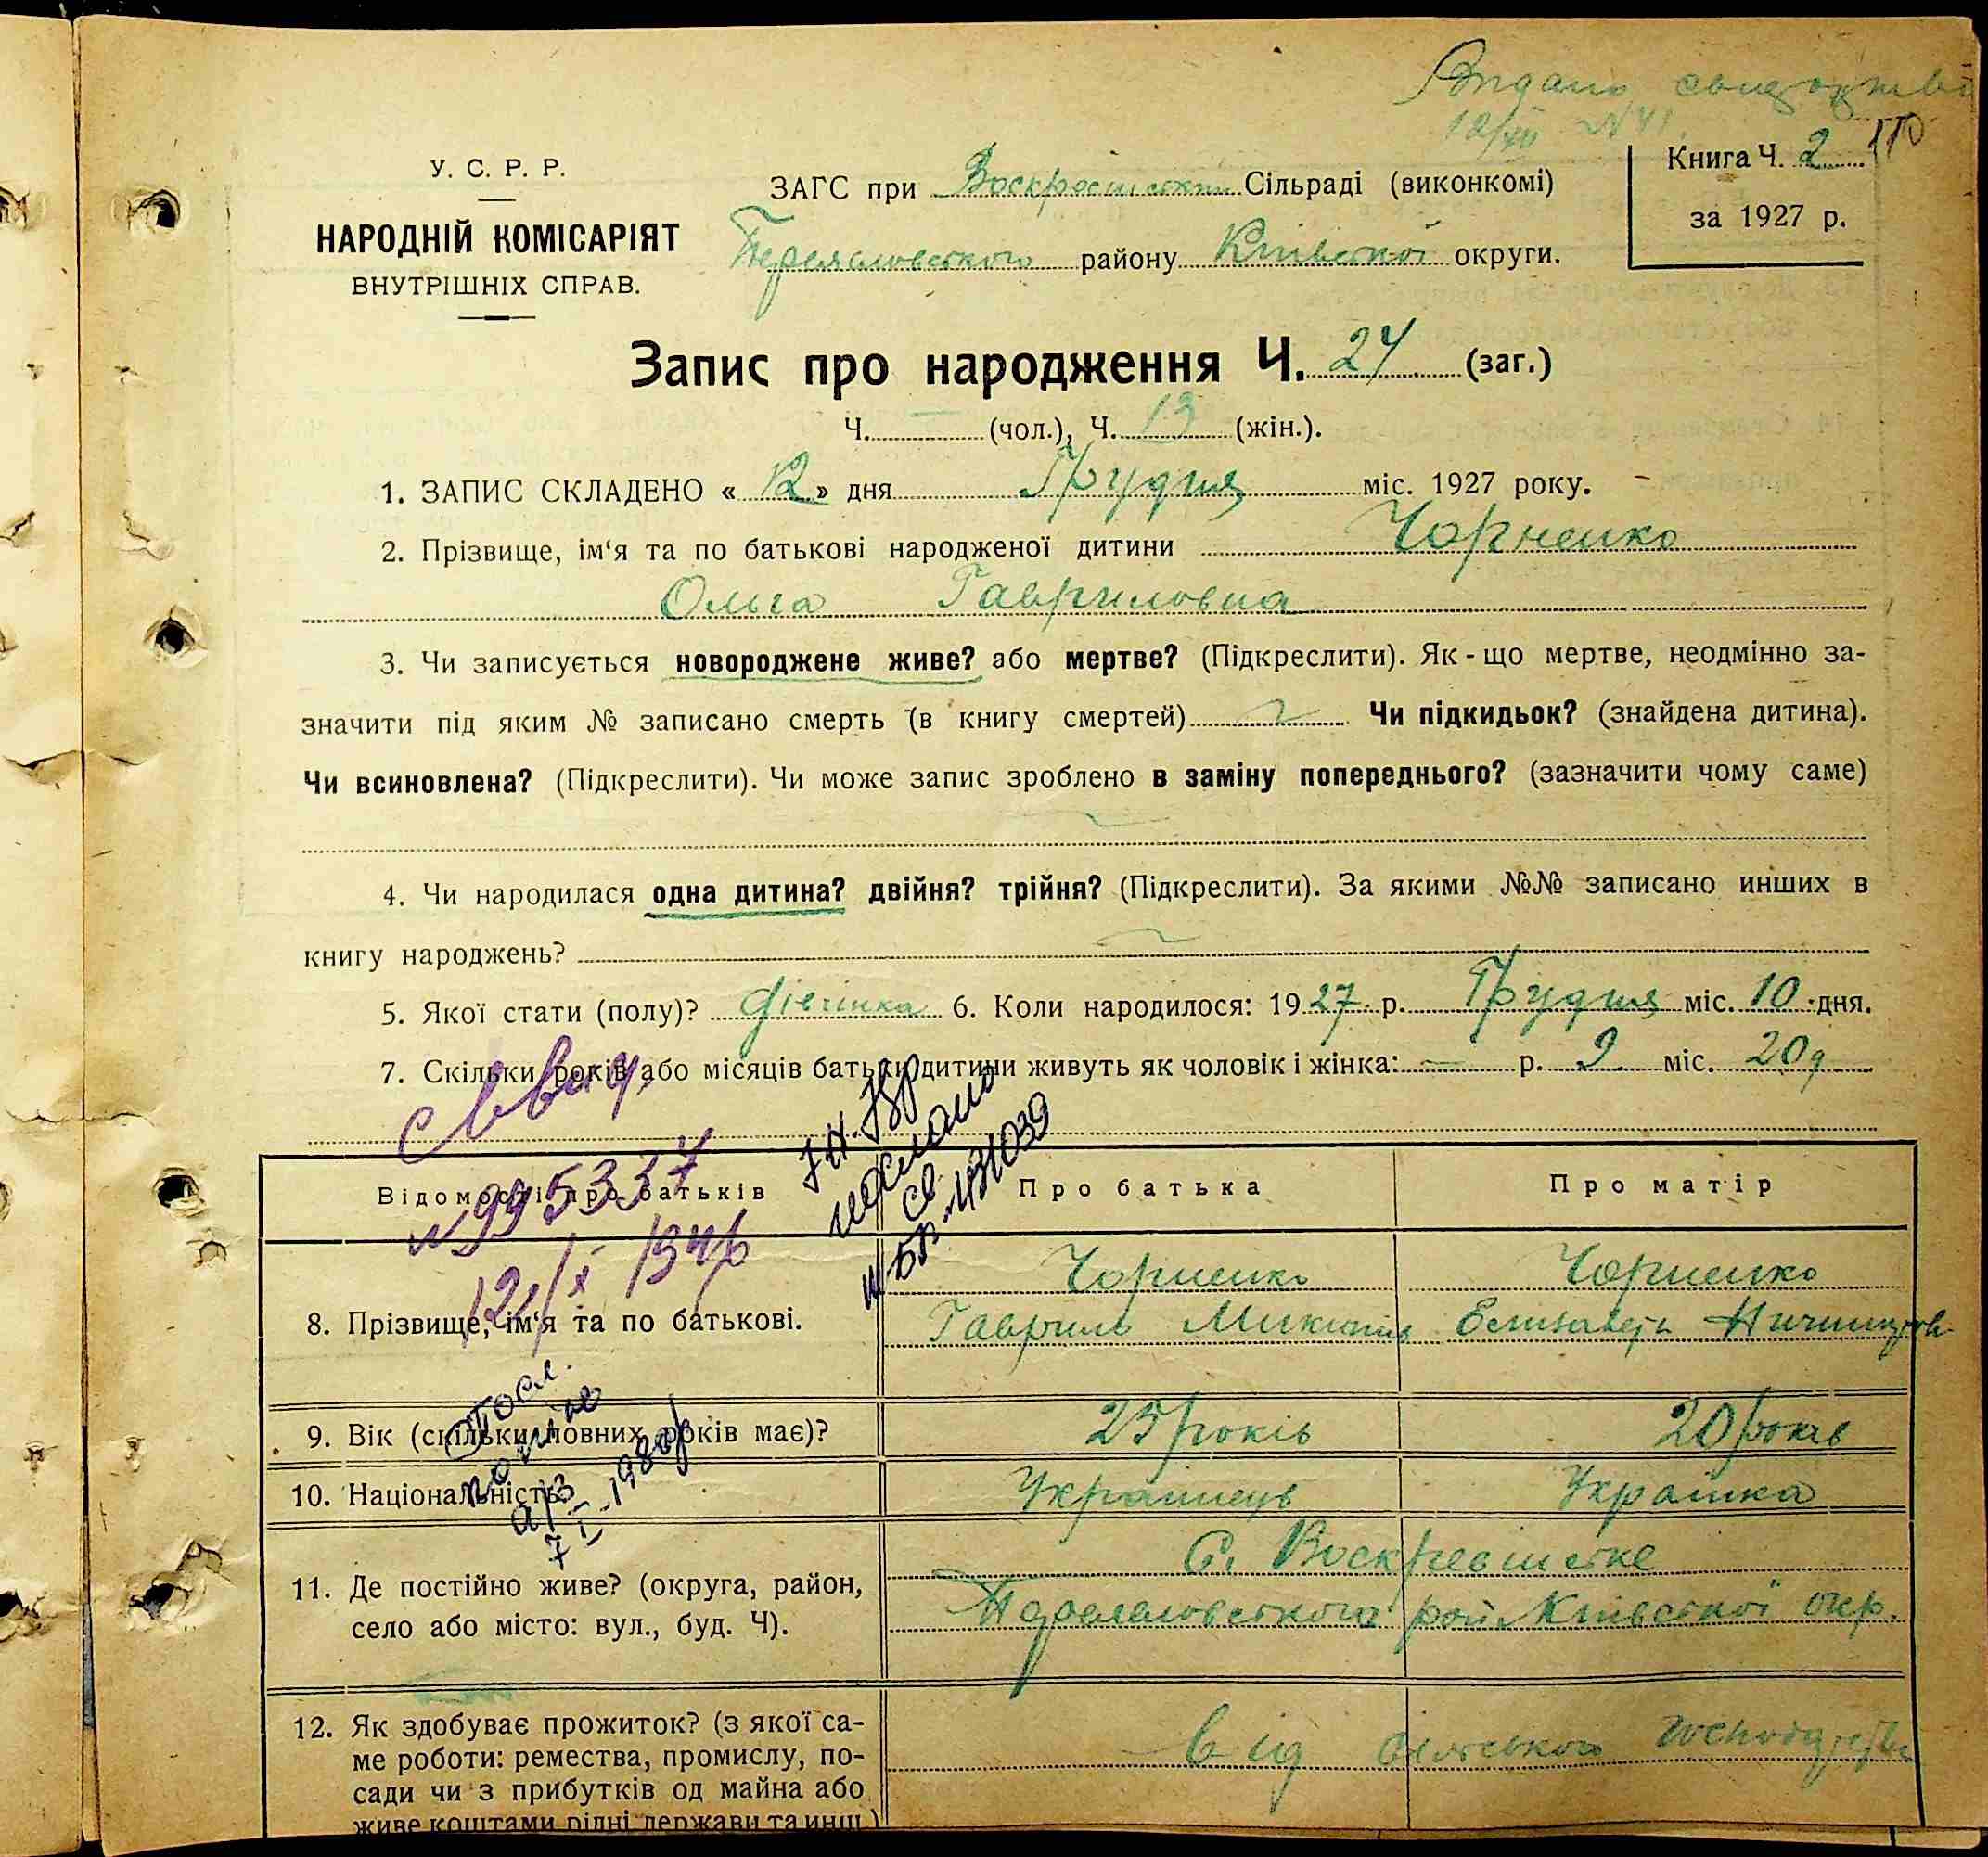 Видано свидоцтво
12/XII №41
У. С. Р. Р.
НАРОДНІЙ КОМІСАРІЯТ
ВНУТРІШНІХ СПРАВ.
ЗАГС при Сільраді (виконкомі)
району Київської округи.
Книга Ч. 2
за 1927 р.
Запис про народження Ч. 24 (заг.)
Ч. (чол.), Ч. 13 (жін.).
1. ЗАПИС СКЛАДЕНО « 12 » дня Грудня міс. 1927 року.
2. Прізвище, ім‘я та по батькові народженої дитини Чорненко
Ольга Гавриловна
3. Чи записується новороджене живе? або мертве? (Підкреслити). Як-що мертве, неодмінно за-
значити під яким № записано смерть (в книгу смертей) Чи підкидьок? (знайдена дитина).
Чи всиновлена? (Підкреслити). Чи може запис зроблено в заміну попереднього? (зазначити чому саме)
4. Чи народилася одна дитина? двійня? трійня? (Підкреслити). За якими №№ записано инших в
книгу народжень?
5. Якої стати (полу)? дівчинка 6. Коли народилося: 1927 р. Грудня міс. 10 дня.
7. Скільки років або місяців батьки дитини живуть як чоловік і жінка: — р. 9 міс. 20 д
Відомості про батьків
Про батька
Про матір
№ 995337
12/X 1946
431039
8. Прізвище, ім‘я та по батькові.
Чорненко
Гаврило
Чорненко
9. Вік (скільки повних років має)?
25 років
20 років
10. Національність.
Українець
Українка
7 I-1980р
11. Де постійно живе? (округа, район,
село або місто: вул., буд. Ч).
С.
рай Київської окр.
12. Як здобуває прожиток? (з якої са-
ме роботи: ремества, промислу, по-
сади чи з прибутків од майна або
живе коштами рідні держави та инш.)
від сільського господарства